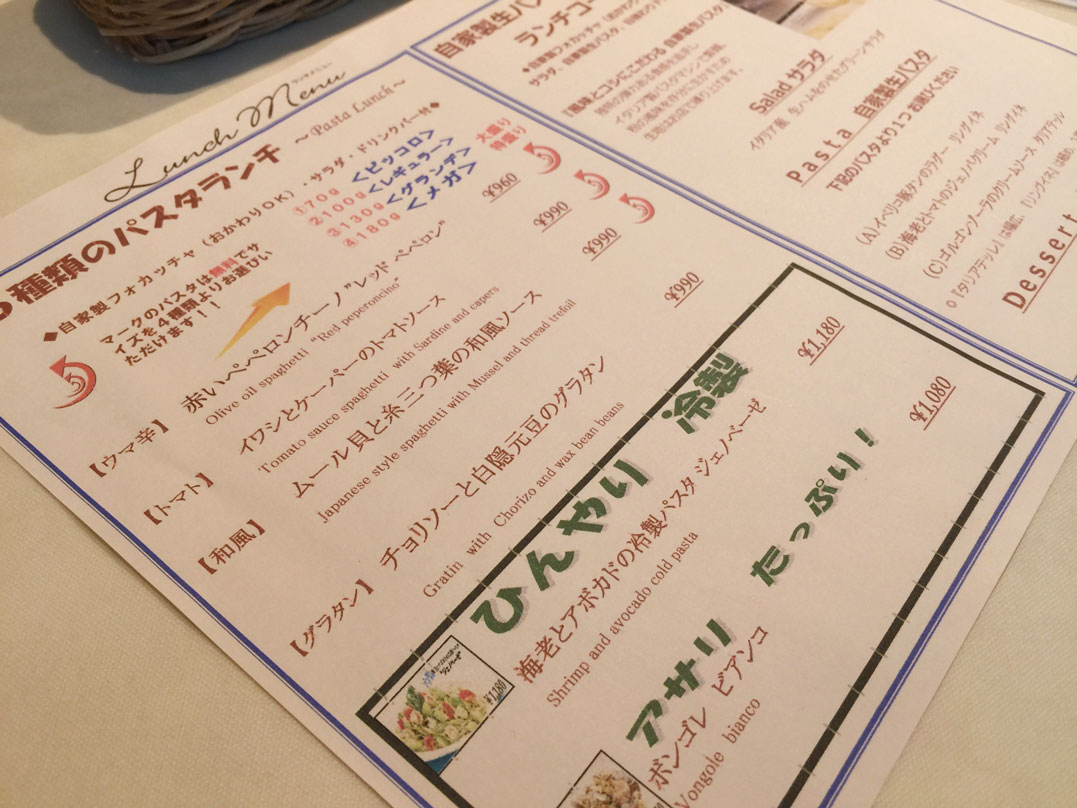 ランチメニュー
Lunch Menu
種類のパスタランチ ～Pasta Lunch～
◆自家製フォカッチャ（おかわりOK）・サラダ・ドリンクバー付◆
マークのパスタは無料でサ
イズを４種類よりお選びい
ただけます！！
①70g <ピッコロ>
②100g <レギュラー>
③130g <グランデ>
④180g <メガ>
大盛り
特盛り
【ウマ辛】 赤いペペロンチーノ"レッド ペペロン" ¥960
Olive oil spaghetti "Red peperoncino"
【トマト】 イワシとケーパーのトマトソース ¥990
Tomato sauce spaghetti with Sardine and capers
【和風】 ムール貝と糸三つ葉の和風ソース ¥990
Japanese style spaghetti with Mussel and thread trefoil
【グラタン】 チョリソーと白隠元豆のグラタン ¥990
Gratin with Chorizo and wax bean beans
ひんやり 冷製
海老とアボカドの冷製パスタ ジェノベーゼ ¥1,180
Shrimp and avocado cold pasta
¥1,180
アサリ たっぷり！
ボンゴレ ビアンコ ¥1,080
Vongole bianco
自家製生パス
ランチコー
◆自家製フォカッチャ
サラダ、自家製生パスタ、
『風味とコシにこだわる 自家製生パスタ
イタリア製パスタマシンで製麺。
Salad サラダ
イタリア産 生ハムをのせたグリーンサラダ
Pasta 自家製生パスタ
下記のパスタより１つお選びください
(A)イベリコ豚タンのラグー リングイネ
(B)海老とトマトのジェノバクリーム リングイネ
(C)ゴルゴンゾーラのクリームソース タリアテッレ
Dessert